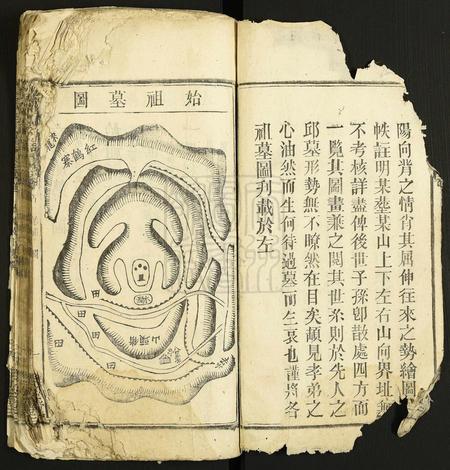 陽向背之情肖其屈伸往來之勢繪圖
帙註明某塋某山上下左右山向界址無
不考核詳盡俾後世子孫卽散處四方而
一覽其圖畫兼之閱其世系則於先人之
邱墓形勢無不瞭然在目矣頼見孝弟之
心油然而生何待過墓而生哀也謹將各
祖墓圖列載於左
始祖墓圖
紅鶴寨
田
田
田
田
田